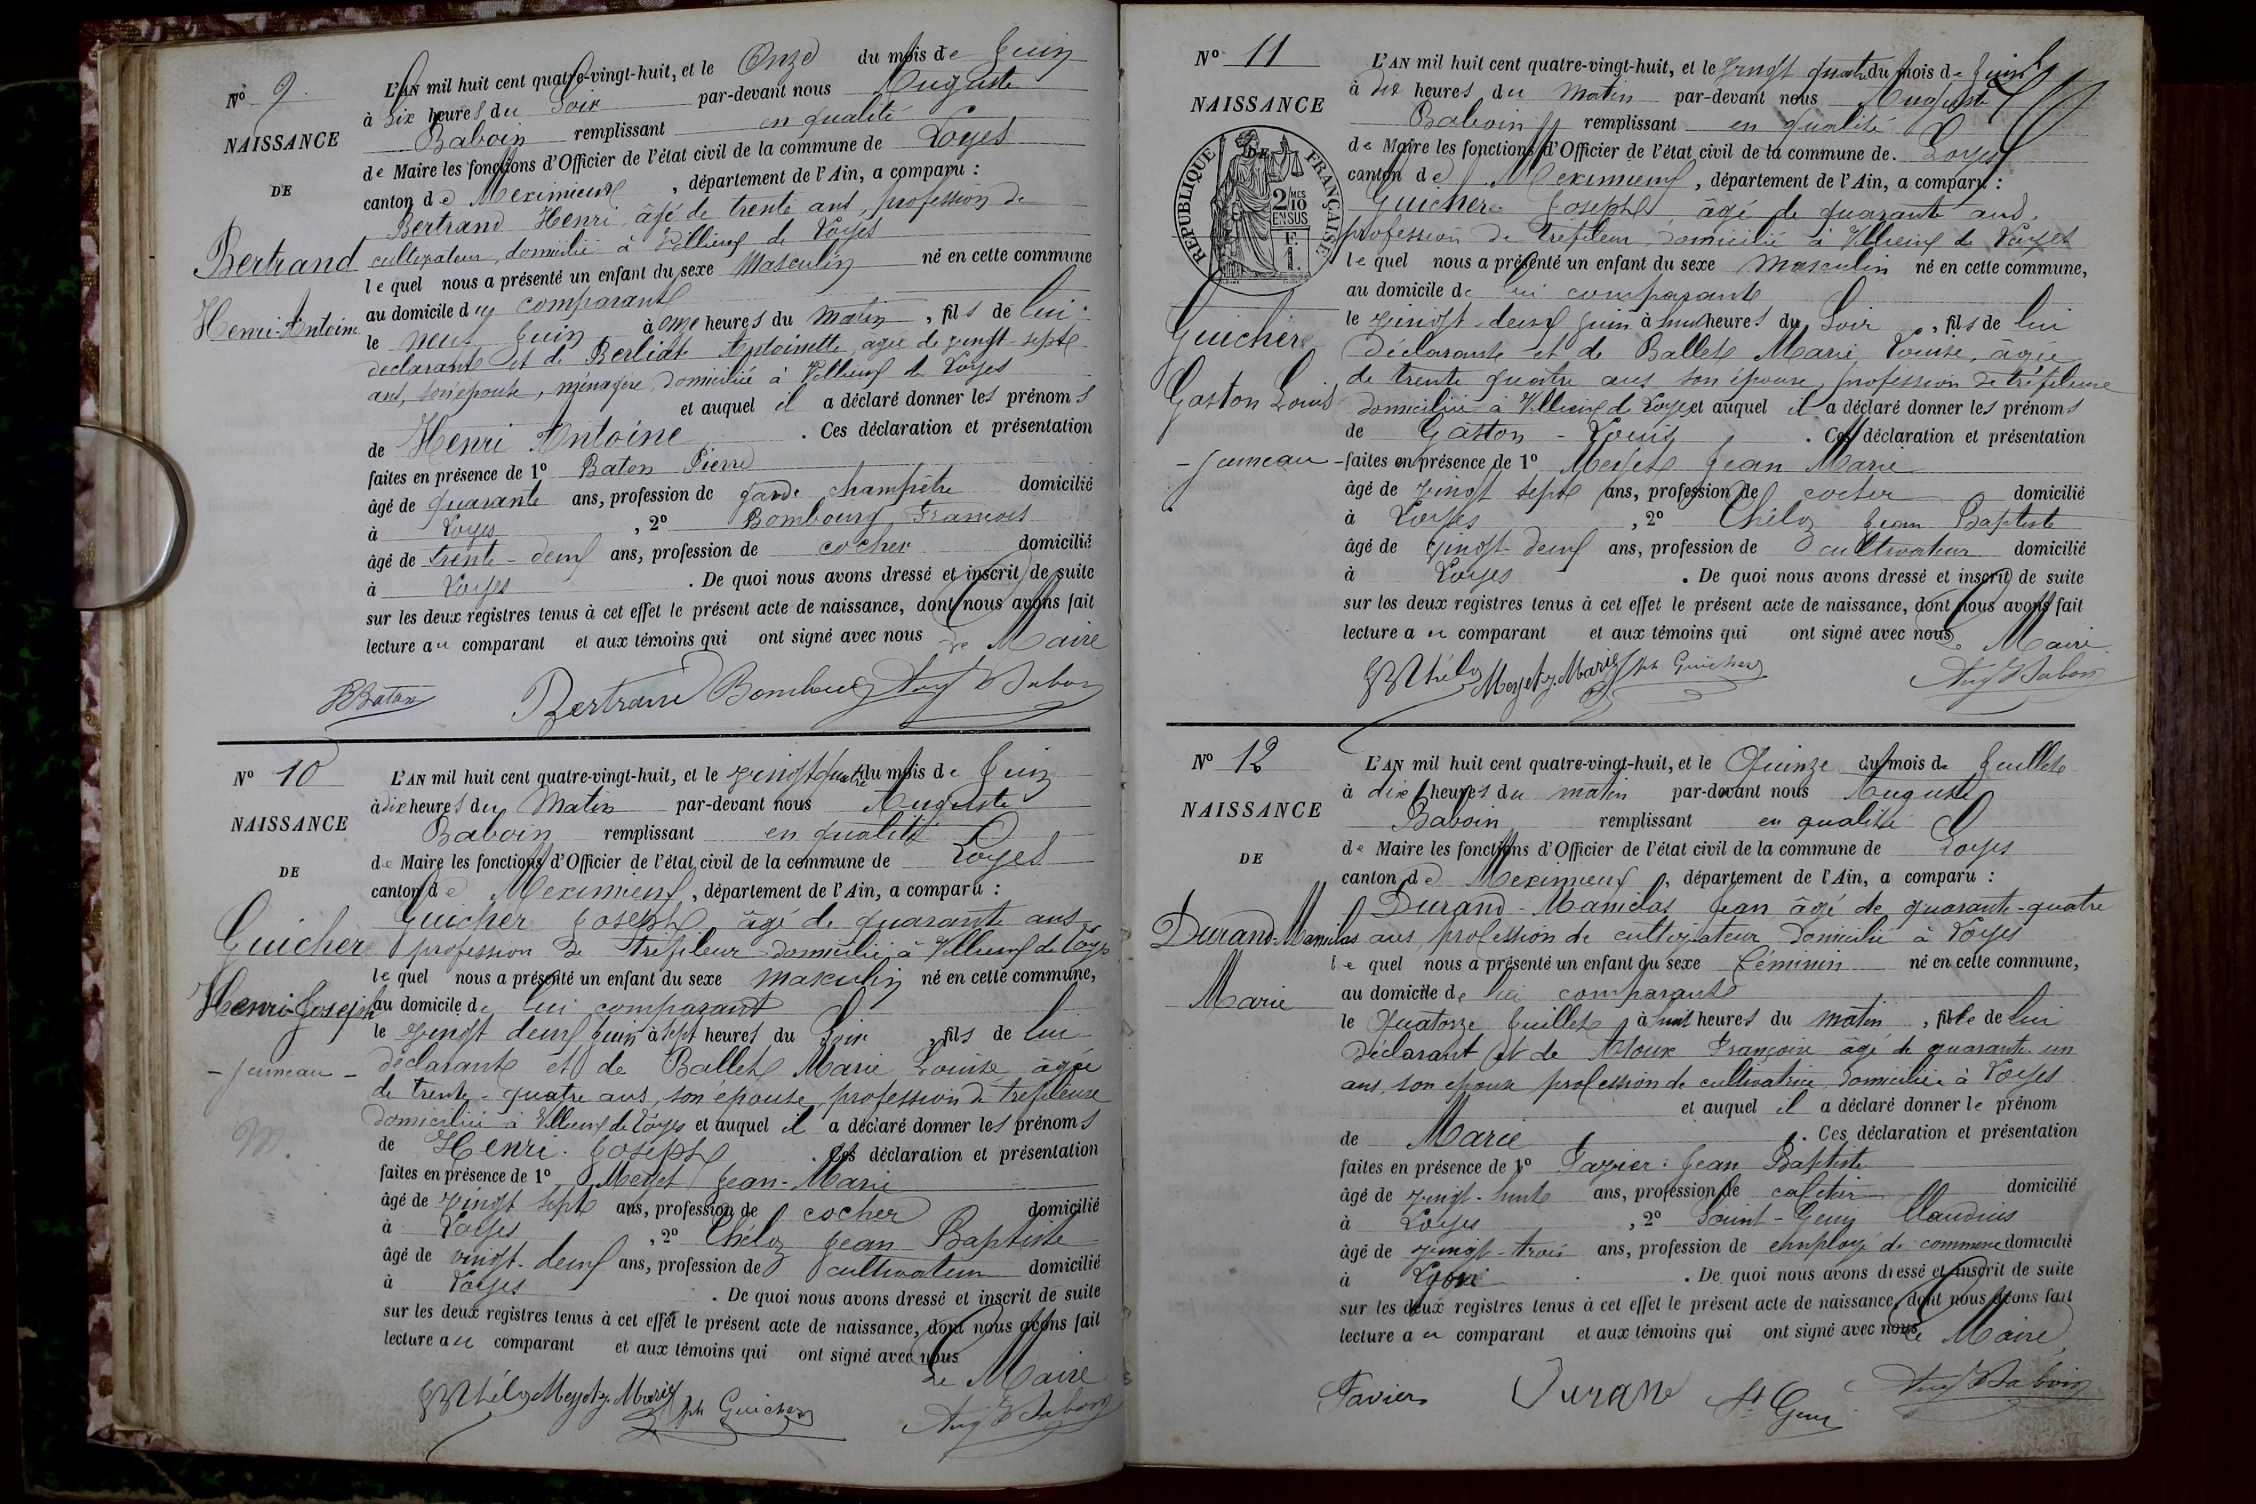 N° 9.
NAISSANCE
DE
Bertrand
Henri-Antoine
L'AN mil huit cent quatre-vingt-huit, et le Onze du mois de Juin
à Six heures du Soir par-devant nous Auguste
Baboin remplissant en qualité
de Maire les fonctions d'Officier de l'état civil de la commune de Loyes
canton de Meximieux, département de l'Ain, a comparu :
Bertrand Henri âgé de trente ans, profession de
cultivateur, domicilié à Villieux de Loyes
lequel nous a présenté un enfant du sexe Masculin né en cette commune
au domicile du comparant
le neuf Juin à onze heures du matin, fils de lui
déclarant et de Berliat Antoinette agée de vingt-sept
ans, son épouse, ménagère domiciliée à Villieux de Loyes
et auquel il a déclaré donner les prénoms
de Henri Antoine. Ces déclaration et présentation
faites en présence de 1° Baton Pierre
âgé de quarante ans, profession de garde champêtre domicilié
à Loyes, 2° Bombourg François
âgé de trente-deux ans, profession de cocher domicilié
à Loyes. De quoi nous avons dressé et inscrit de suite
sur les deux registres tenus à cet effet le présent acte de naissance, dont nous avons fait
lecture au comparant et aux témoins qui ont signé avec nous
Le Maire
PBaton Bertrand Bombourg Aug Baboin
N° 10
NAISSANCE
DE
Guicher
Henri-Joseph
- jumeau -
L'AN mil huit cent quatre-vingt-huit, et le vingt quatre du mois de Juin
à dix heures du Matin par-devant nous Auguste
Baboin remplissant en qualité
de Maire les fonctions d'Officier de l'état civil de la commune de Loyes
canton de Meximieux, département de l'Ain, a comparu :
Guicher Joseph âgé de quarante ans
profession de tréfileur domicilié à Villieux de Loyes
lequel nous a présenté un enfant du sexe masculin né en cette commune,
au domicile de lui comparant
le vingt deux Juin à sept heures du Soir, fils de lui
déclarant et de Ballet Marie Louise âgée
de trente-quatre ans, son épouse, profession de tréfileuse
domiciliée à Villieux de Loyes et auquel il a déclaré donner les prénoms
de Henri-Joseph. Ces déclaration et présentation
faites en présence de 1° Meyet Jean-Marie
âgé de vingt sept ans, profession de cocher domicilié
à Loyes, 2° Chéloz Jean Baptiste
âgé de vingt-deux ans, profession de cultivateur domicilié
à Loyes. De quoi nous avons dressé et inscrit de suite
sur les deux registres tenus à cet effet le présent acte de naissance, dont nous avons fait
lecture au comparant et aux témoins qui ont signé avec nous
Le Maire
Chéloz Meyet J. Marie Jph Guicher Aug Baboin
N° 11
NAISSANCE
DE
RÉPUBLIQUE FRANÇAISE
2/10 MES
EN SUS
F.
1.
Guicher
Gaston Louis
- jumeau -
L'AN mil huit cent quatre-vingt-huit, et le vingt quatre du mois de Juin
à dix heures du matin par-devant nous Auguste
Baboin remplissant en qualité
de Maire les fonctions d'Officier de l'état civil de la commune de Loyes
canton de Meximieux, département de l'Ain, a comparu :
Guicher Joseph, âgé de quarante ans,
profession de tréfileur domicilié à Villieux de Loyes
lequel nous a présenté un enfant du sexe masculin né en cette commune,
au domicile de lui comparant
le vingt-deux juin à huit heures du Soir, fils de lui
déclarant et de Ballet Marie Louise, âgée
de trente quatre ans son épouse, profession de tréfileuse
domiciliée à Villieux de Loyes et auquel il a déclaré donner les prénoms
de Gaston-Louis. Ces déclaration et présentation
faites en présence de 1° Meyet Jean Marie
âgé de vingt sept ans, profession de cocher domicilié
à Loyes, 2° Chéloz Jean Baptiste
âgé de vingt-deux ans, profession de cultivateur domicilié
à Loyes. De quoi nous avons dressé et inscrit de suite
sur les deux registres tenus à cet effet le présent acte de naissance, dont nous avons fait
lecture au comparant et aux témoins qui ont signé avec nous
Le Maire
Chéloz Meyet J. Marie Jph Guicher Aug Baboin
N° 12
NAISSANCE
DE
Durand-Maniclas
Marie
L'AN mil huit cent quatre-vingt-huit, et le Quinze du mois de Juillet
à dix heures du matin par-devant nous Auguste
Baboin remplissant en qualité
de Maire les fonctions d'Officier de l'état civil de la commune de Loyes
canton de Meximieux, département de l'Ain, a comparu :
Durand-Maniclas Jean âgé de quarante-quatre
ans, profession de cultivateur domicilié à Loyes
lequel nous a présenté un enfant du sexe féminin né en cette commune,
au domicile de lui comparant
le Quatorze Juillet à huit heures du matin, fille de lui
déclarant et de Françoise âgé de quarante un
ans, son épouse profession de cultivatrice domiciliée à Loyes
et auquel il a déclaré donner le prénom
de Marie. Ces déclaration et présentation
faites en présence de 1° Favier Jean Baptiste
âgé de vingt-huit ans, profession de cafetier domicilié
à Loyes, 2° Saint-Genis Claudius
âgé de vingt-trois ans, profession de employé de commerce domicilié
à Lyon. De quoi nous avons dressé et inscrit de suite
sur les deux registres tenus à cet effet le présent acte de naissance, dont nous avons fait
lecture au comparant et aux témoins qui ont signé avec nous
Le Maire
Favier Durand St Genis Aug Baboin